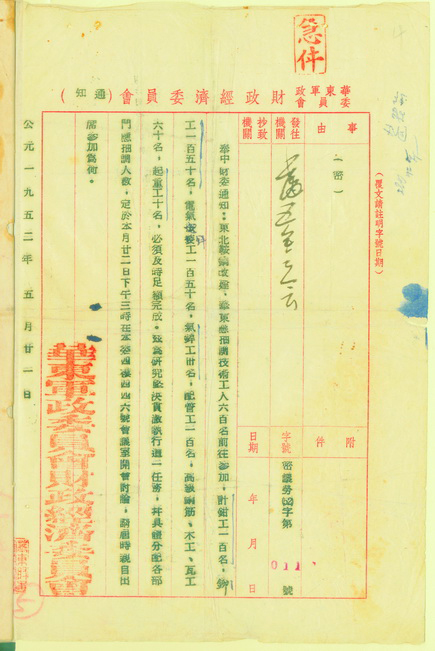 急件
華東軍政委員會財政經濟委員會（通知）
（覆文請註明字號日期）
事由
（密）
附件
發往機關
抄致機關
字號
密議勞字第011號
日期
年 月 日
奉中財委通知：東北鞍鋼改建，華東應抽調技術工人六百名前往參加，計鉗工一百名，鉚
工一百五十名，電氣安裝工一百五十名，氣焊工卅名，配管工一百名，高級鋼筋、木工、瓦工
六十名，起重工十名，必須及時足額完成。茲為研究必決貫澈執行這一任務，并具體分配各部
門應抽調人數，定於本月廿二日下午三時在本委四樓四四六號會議室開會討論，請屆時親自出
席參加為荷。
公元一九五二年五月廿一日
華東軍政委員會財政經濟委員會